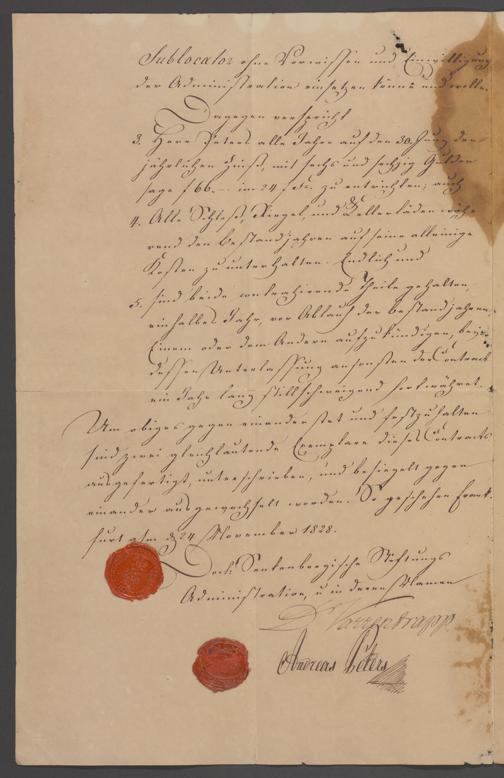 Sublocator ohne Vorwissen und Einwilligung
der Administration einsetzen könne und wolle.
Dagegen verspricht
3. Herr Peters alle Jahre auf den 30. Juny den
jährlichen Zinß, mit sechs und sechzig Gulden
sage f 66.— im 24 f Fuß. zu entrichten; auch
4. Alle Schloß, Riegel, und Kellerläden wäh-
rend den Bestandjahren auf seine alleinige
Kosten zu unterhalten. Endlich und
5. sind beide contrahirende Theile gehalten,
ein halbes Jahr, vor Ablauf der Bestandjahren,
Einem oder dem Andern aufzukündigen, bey
dessen Unterlassung ansonsten der Contract
ein Jahr lang stillschweigend fortwähret.
Um obiges gegen einander stet und fest zu halten
sind zwei gleichlautende Exemplare dieses Contracts
ausgefertigt, unterschrieben, und besiegelt gegen
einander ausgewechselt worden. So geschehen Frank-
furt a/m d 24 November 1828.
Doct. Senkenbergische Stiftungs
Administration, u in deren Namen
Dr Varrentrapp.
Andreas Peters